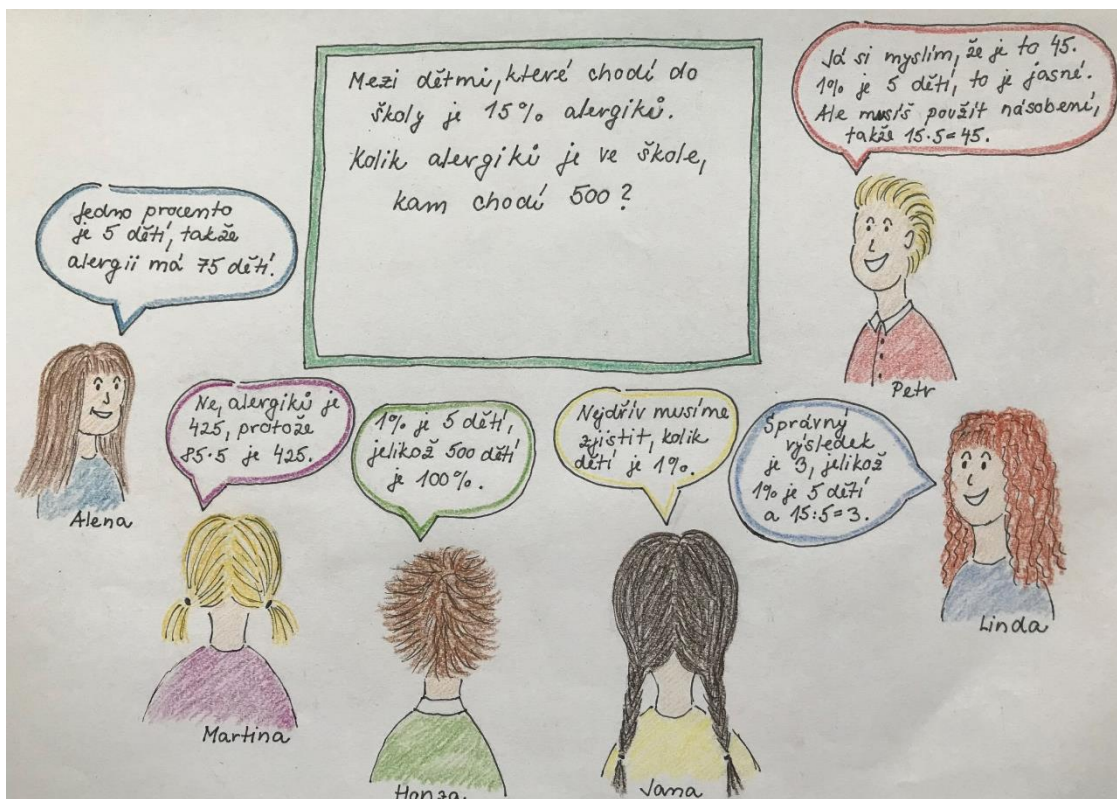 Mezi dětmi, které chodí do
školy je 15% alergiků.
Kolik alergiků je ve škole,
kam chodí 500?
Já si myslím, že je to 45.
1% je 5 dětí, to je jasné.
Ale musíš použít násobení,
takže 15·5=45.
Petr
Jedno procento
je 5 dětí, takže
alergii má 75 dětí.
Alena
Ne, alergiků je
425, protože
85·5 je 425.
Martina
1% je 5 dětí,
jelikož 500 dětí
je 100%.
Honza
Nejdřív musíme
zjistit, kolik
dětí je 1%.
Jana
Správný
výsledek
je 3, jelikož
1% je 5 dětí
a 15:5=3.
Linda